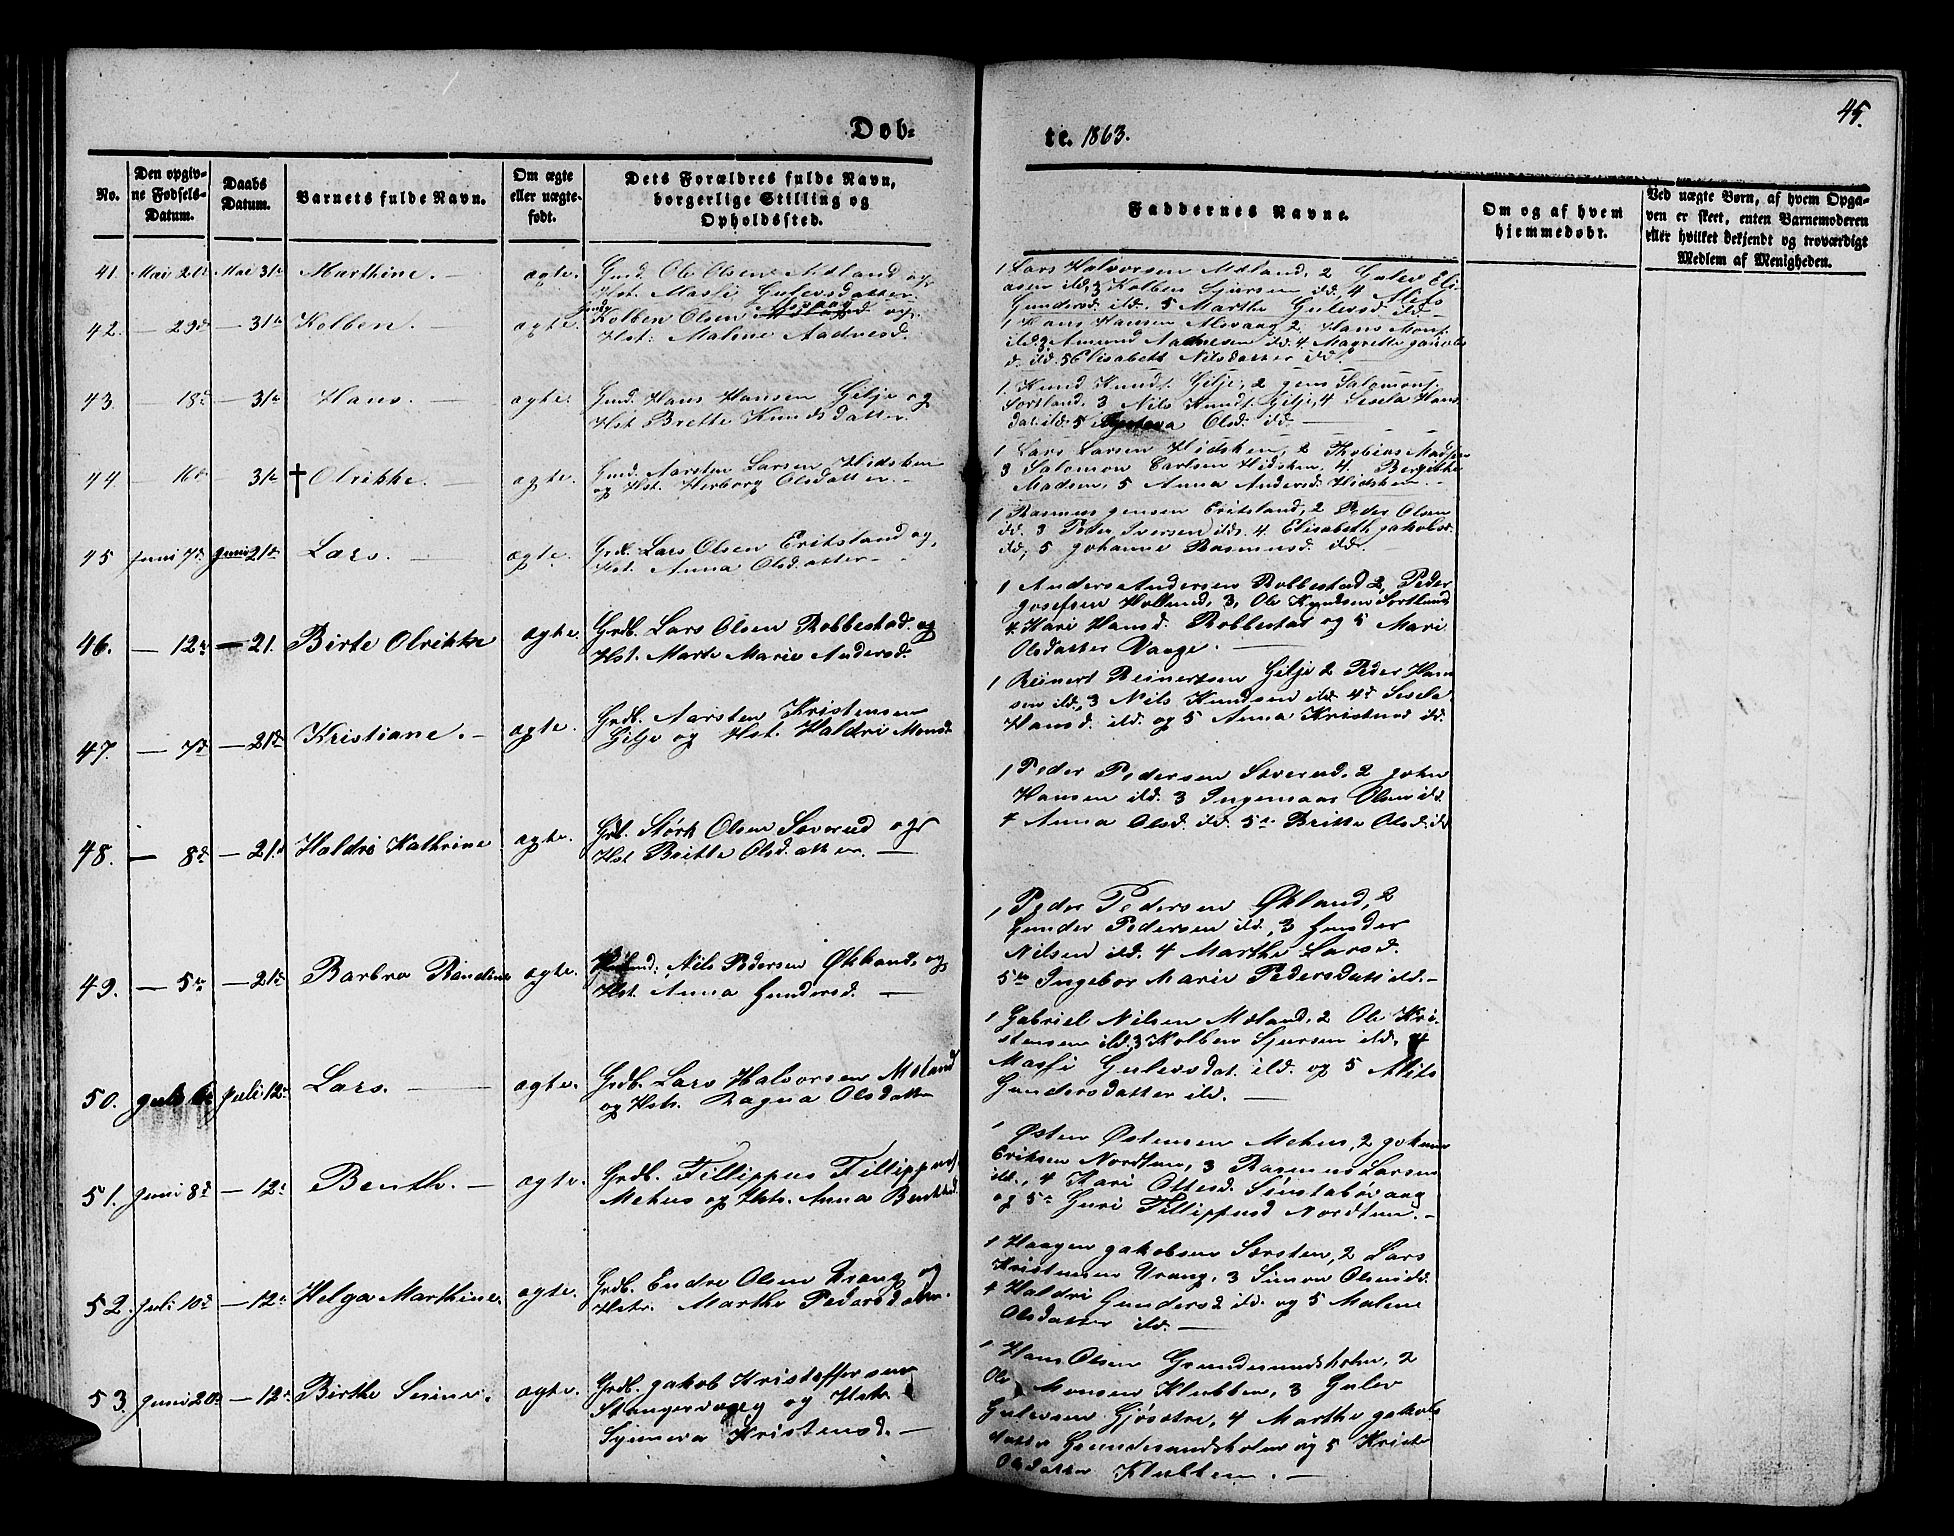 45.
Døb-
te. 1863.
No.
Den opgiv-
ne Fødsels-
Datum.
Daabs
Datum.
Barnets fulde Navn.
Om ægte
eller uægte-
født.
Dets Forældres fulde Navn,
borgerlige Stilling og
Opholdssted.
Faddernes Navne.
Om og af hvem
hjemmedøbt.
Ved uægte Børn, af hvem Opga-
ven er skeet, enten Barnemoderen
eller hvilket bekjendt og troværdigt
Medlem af Menigheden.
41. Mai 21de Mai 31te Marthine. — agte.
Gmd. Ole Olsen Mæland og
Hst. Masli Gulevsdatter
1 Lars Halvorsen Mæland, 2 Gulev Eli-
asen ild, 3 Kolben Sjursen ild. 4 Alets
Gundersd. ild. 5 Marthe Gulevsd. ild.
42. — 29d — 31te Kolben. — agte
Kolben Olsen Alsvaag og
Hst: Malene Aadnesd.
1 Hans Hansen Alsvaag 2, Hans Mons.
ild. 3 Amund Aadnesen ild. 4 Magrette
d. ild. 5 Elisabeth Nilsdatter ild.
43. — 18d — 31te Hans. — agte.
Gmd. Hans Hansen Gilje og
Hst Brette Knudsdatter.
1 Knud Knuds. Gilje, 2 Jens Salomons.
Sortland, 3 Nils Knuds. Gilje, 4 Sesela Hans
dat. ild. 5 Olsd. ild. —
44 — 16d — 31te † Olrikke. — agte.
Gmd. Aarsten Larsen Hidsken
og Hst. Herborg Olsdatter. —
1 Lars Larsen Hidsken, 2 Tobias Madsen
3 Salomon Carlsen Hidsken, 4. Bergitthe
Madsen, 5 Anna Andersd. Hidsken. —
45 Juni 7d Juni 21de Lars. — agte.
Grdb. Lars Olsen Eritsland og,
Hst. Anna Olsdatter —
1 Rasmus Jensen Eritsland, 2 Peder Olsen
ild. 3 Peder Iversen ild. 4. Elisabeth Jakobsd.
ild, 5 Johanne Rasmusd. ild.
46. — 12te — 21. Birte Olrikke agte.
Grdb. Lars Olsen Robbestad og
Hst. Marte Marie Andersd.
1 Anders Andersen Robbestad 2, Peder
Josefsen Hollund, 3, Ole Knudsen Sortland
4. Kari Hansd. Robbestad og 5 Mari
Olsdatter Vaage. —
47. — 7d — 21de Kristiane. — agte.
Grdb. Aarsten Kristensen
Gilje og Hst. Haldri Monsd.
1 Reinert Reinertsen Gilje 2 Peder Han
sen ild. 3 Nils Knudsen ild. 4d Sesela
Hansd. ild og 5 Anna Kristensd ild.
48. — 8d — 21de Haldri Kathrine agte.
Grdb. Størk Olsen Sæverud og
Hst Britte Olsdatter. —
1 Peder Pedersen Sæverud, 2 John
Hansen ild. 3 Ingemaar Olsen ild.
4 Anna Olsd. ild. 5te Britte Olsd. ild
49. — 5te — 21de Barbro Randine agte.
Nils Pedersen Økland, og
Hst. Anna Gundersd. —
1 Peder Pedersen Økland, 2
Gunder Pedersen ild, 3 Gunder
Nilsen ild. 4 Marthe Larsd.
5te Ingebor Marie Pedersdatt ild. —
50. Juli Juli 12te Lars. — agte.
Grdb. Lars Halvorsen Mæland
og Hstr. Ragna Olsdatte
1 Gabriel Nilsen Mæland, 2 Ole Kri-
stensen ild. 3 Kolben Sjursen ild, 4
Masli Gulevsdat. ild. og 5 Alits
Gundersdatter ild. —
51. Juni 8d — 12te Benth. — agte.
Grdb. Fillippus Fillippus
Mehus og Hstr. Anna Benthsd.
1 Østen Østensen Mehus, 2 Johannes
Eriksen Nordtun, 3 Rasmus Larsen
ild., 4 Kari Ottesd. Sinstabøvaag
og 5te Guri Fillippusd Nordtun. —
52. Juli 10d — 12te Helga Marthine. agte.
Grdb. Endre Olsen Vrang og
Hstr. Marthe Pedersdatter.
1 Haagen Jakobsen Sørsten, 2 Lars
Kristensen Vrang, 3 Simon Olsen ild.
4 Haldri Gundersd ild. og 5 Malene
Olsdatter ild. —
53. Juni 20de — 12te Birthe Serine. agte.
Grdb. Jakob Kristoffersen
Stangervaag og Hstr.
Synneva Kristensd. —
1 Hans Olsen Grundesundsholm, 2
Ole Monsen Klubben, 3 Gulev
Gulevsen Gjøsetre, 4 Marthe Jakobs
datter Grundesundsholm og 5 Kriste
Olsdatter Klubben. —